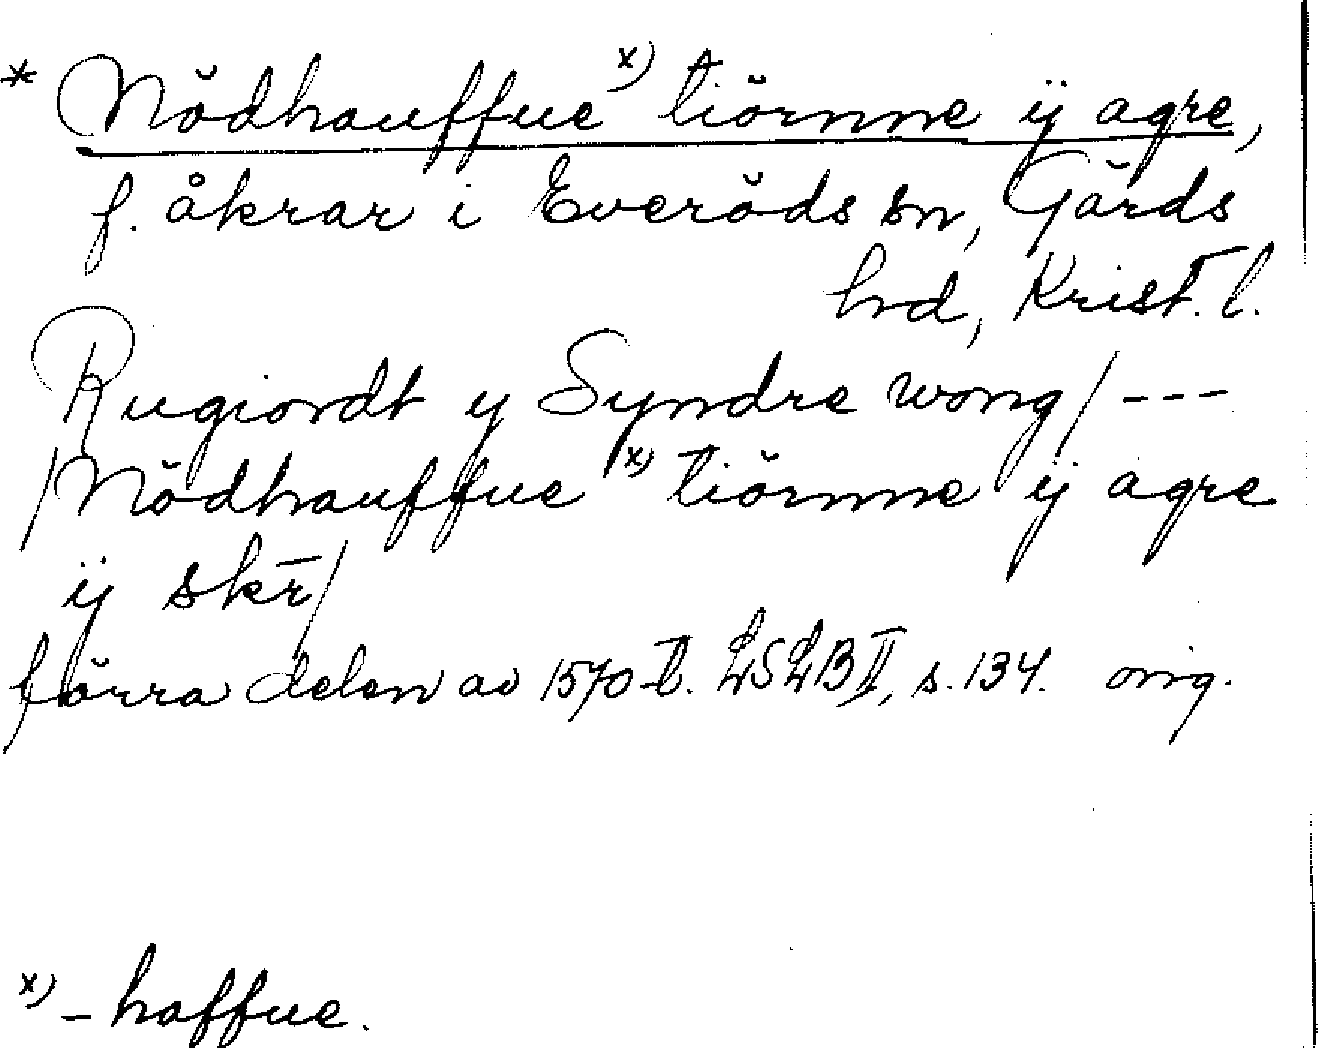 * Nödhauffue x) tiörnne ÿ agre,
f. åkrar i Everöds sn, Gärds
hd, Krist. l.
Rugiordt y Syndre wong/ ---
/Nödhauffue x) tiörnne ÿ agre
ÿ skr̄/
förra delen av 1570-t. LSLB II, s. 134. orig.
x) - haffue.